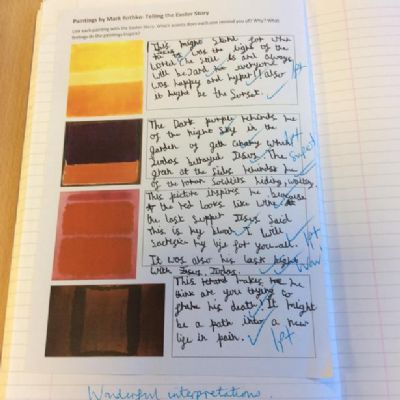 Paintings by Mark Rothko: Telling the Easter Story
Link each painting with the Easter Story. Which events does each one remind you of? Why? What
feelings do the paintings inspire?
This might stand for when
was the light of the
world. He still is and always
will be. and everyone
was happy and hyper! I also
it might be the Sunset.
1pt
The Dark purple reminds me
of the night sky in the
garden of geth when
Judas betrayed Jesus. The
at the sides reminds me
of the roman Soldiers hiding, waiting.
1pt
Superb
This picture inspires me because
the red looks like wine
the last supper Jesus Said
this is my blood I will
my life for you all.
It was also his last night
with Judas.
1pt
Wow!
This makes me
think are you trying to
his death! It might
be a path into a new
life in pain.
1pt
Wonderful interpretations.